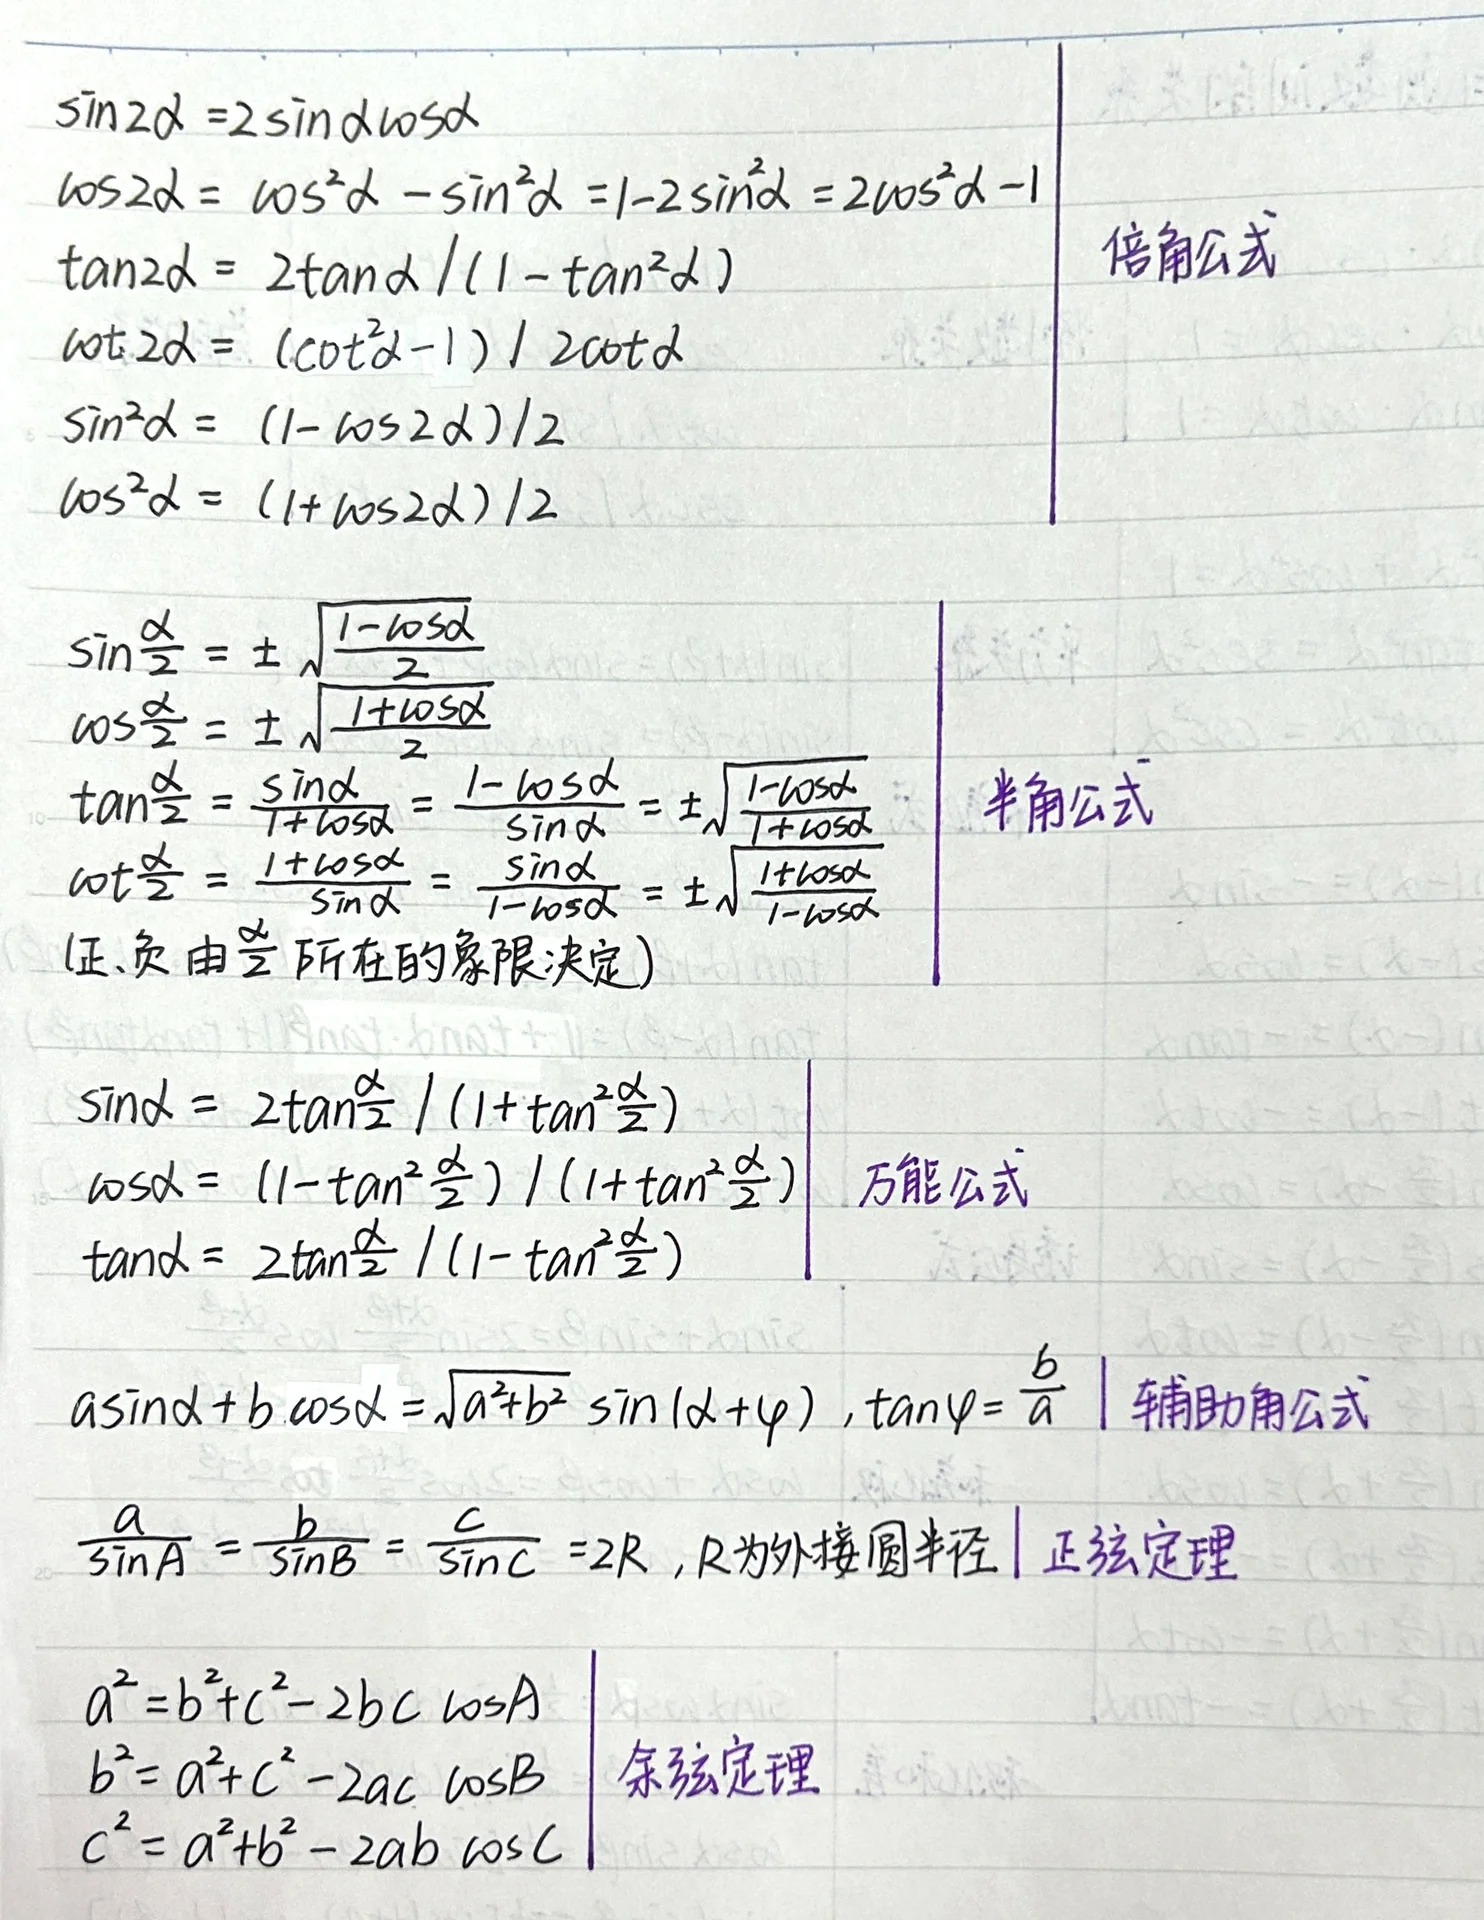 sin2α = 2sinαcosα
cos2α = cos²α - sin²α = 1-2sin²α = 2cos²α -1
倍角公式
tan2α = 2tanα/(1-tan²α)
cot2α = (cot²α-1)/2cotα
sin²α = (1-cos2α)/2
cos²α = (1+cos2α)/2
sin α/2 = ± √((1-cosα)/2)
cos α/2 = ± √((1+cosα)/2)
tan α/2 = sinα/(1+cosα) = (1-cosα)/sinα = ±√((1-cosα)/(1+cosα))
半角公式
cot α/2 = (1+cosα)/sinα = sinα/(1-cosα) = ±√((1+cosα)/(1-cosα))
(正、负由 α/2 所在的象限决定)
sinα = 2tan α/2 /(1+tan² α/2)
cosα = (1-tan² α/2)/(1+tan² α/2) 万能公式
tanα = 2tan α/2 /(1-tan² α/2)
asinα+b cosα=√(a²+b²) sin(α+φ), tanφ= b/a 辅助角公式
a/sinA = b/sinB = c/sinC =2R, R为外接圆半径 正弦定理
a²=b²+c²-2bc cosA
b²=a²+c²-2ac cosB 余弦定理
c²=a²+b²-2ab cosC